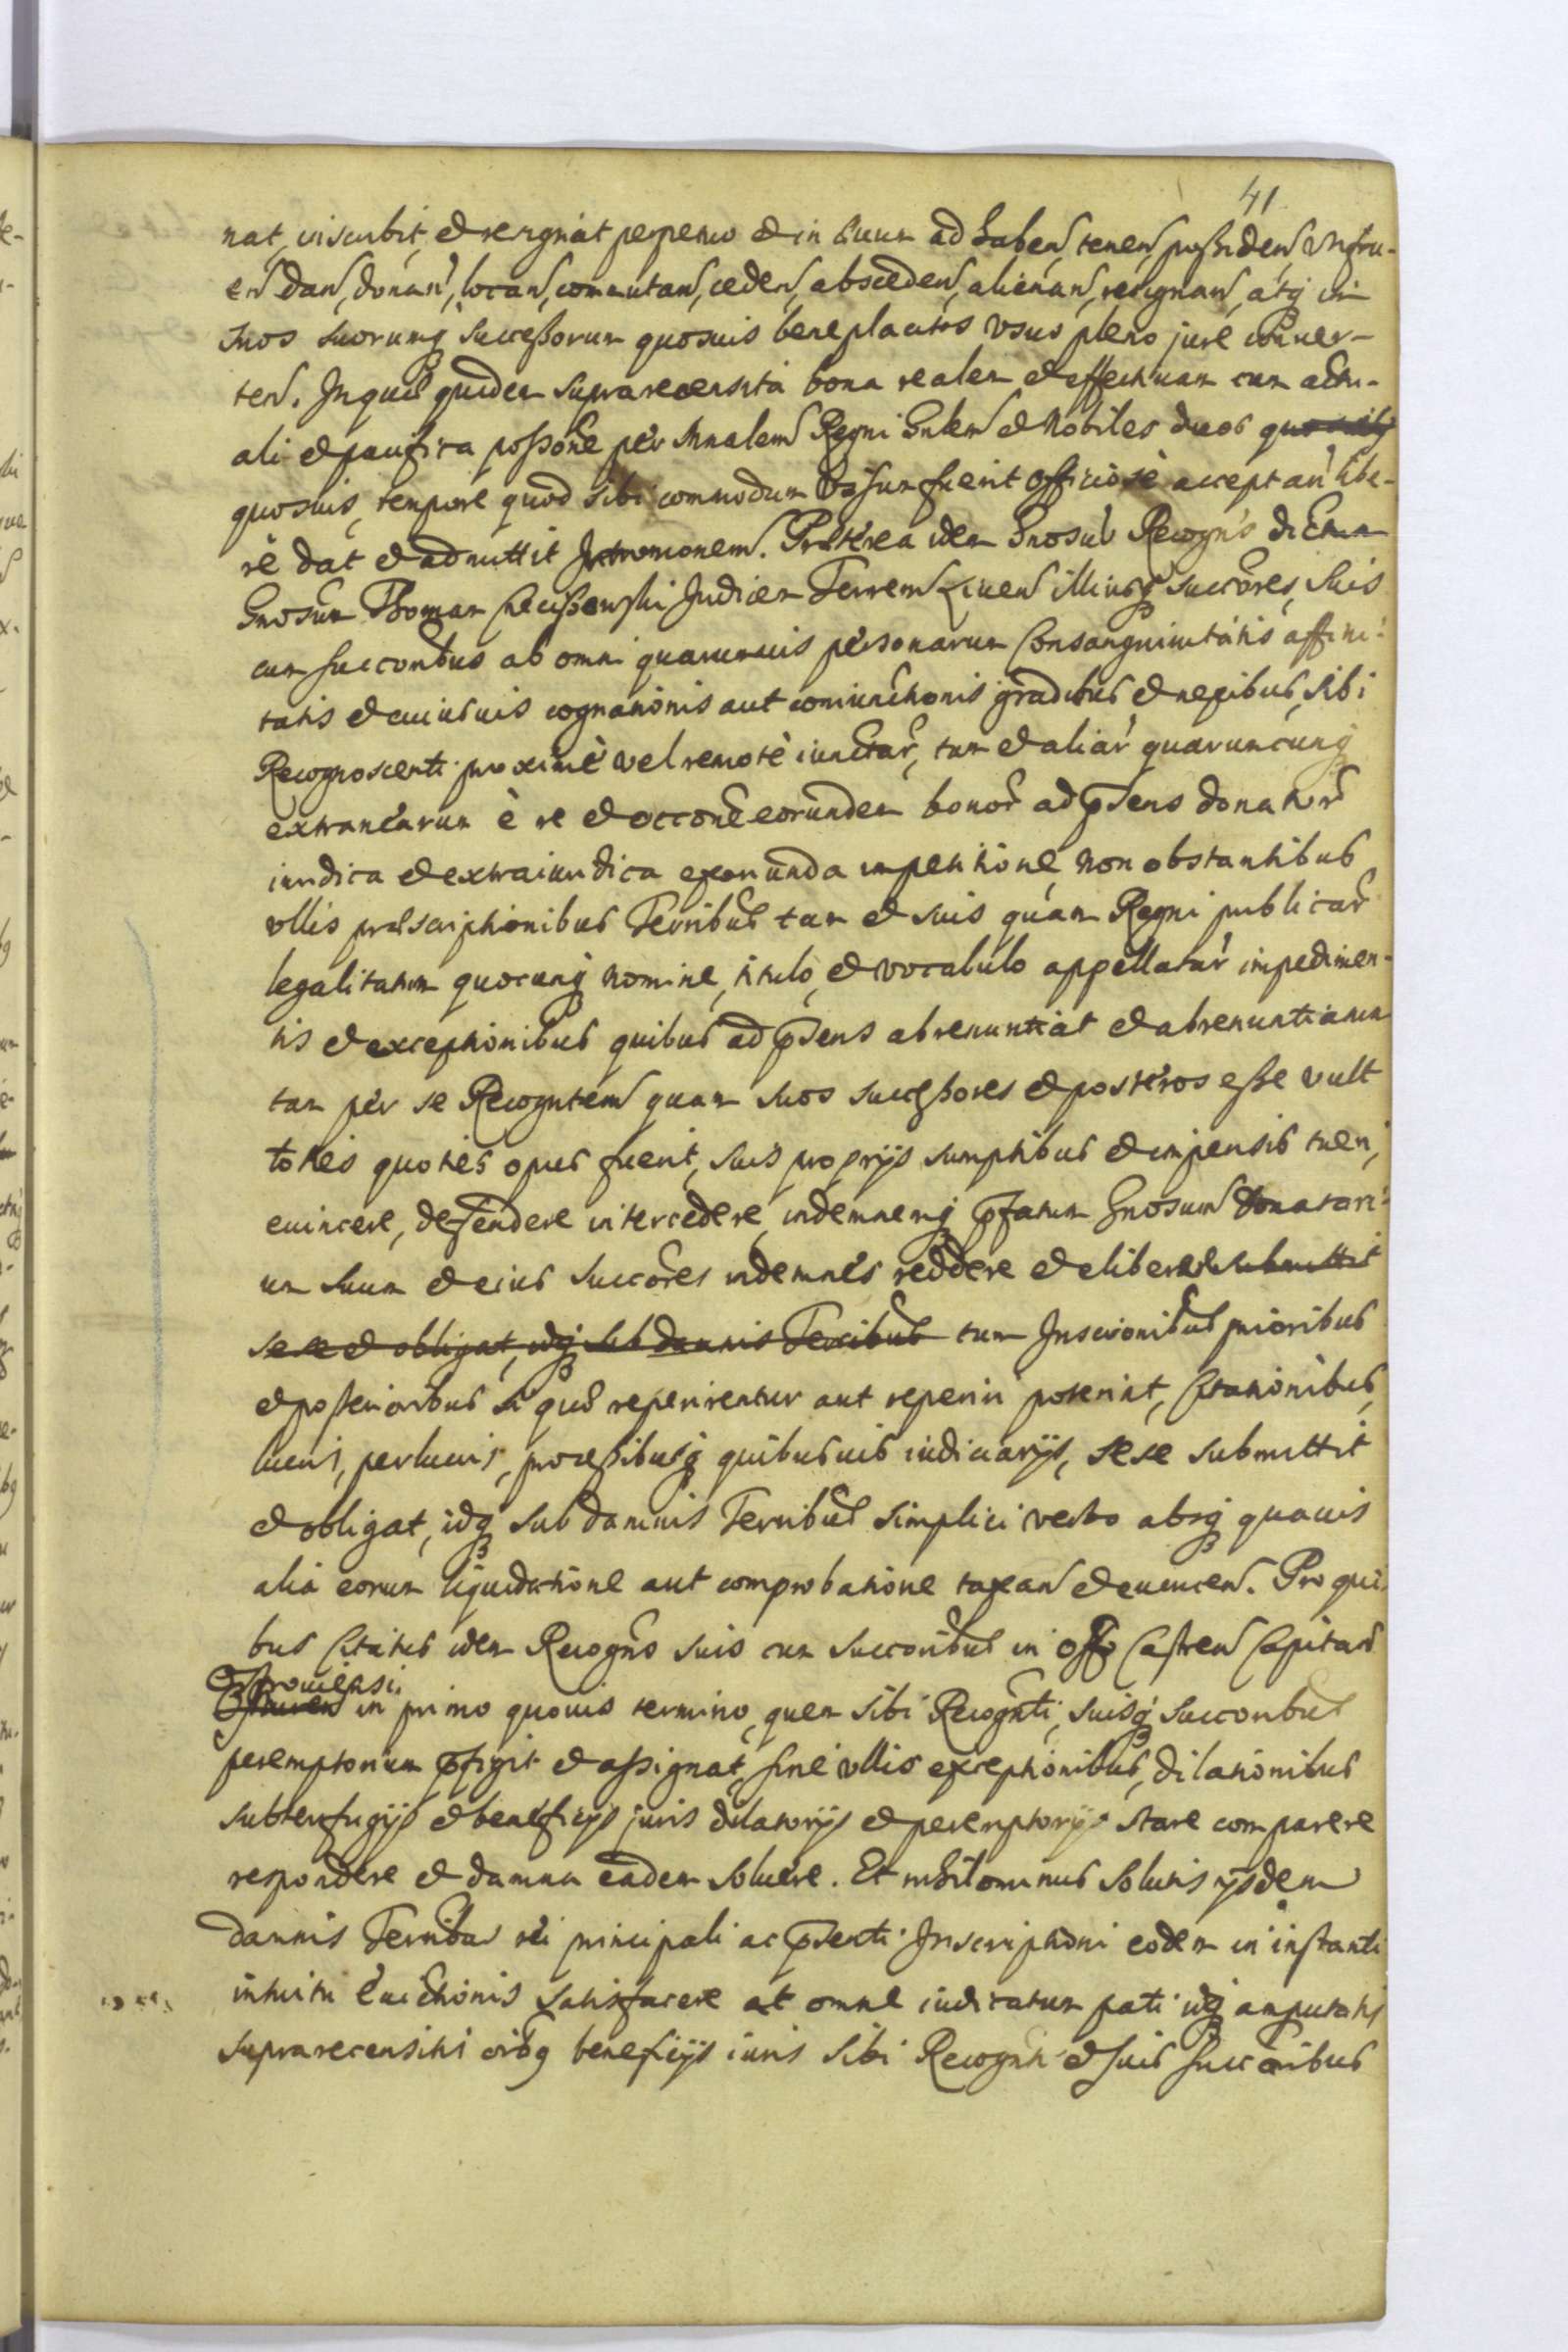 41
nat, inscribit, et resignat perpetuo et in ęvum ad haben, tenen, possiden, vtifru-
en dan, donan, locan, comutan, ceden, absceden, alienan, resignan, atq in
suos suorumq successorum quosuis beneplacitos vsus pleno jure conuer-
ten. In quę quidem suprarecensita bona realem et effectiuam cum actu-
ali et paucifica possone per Mnalem Regni Gnlem et Nobiles duos
quosuis, tempore quod sibi commodum visum fuerit officiose acceptan libe-
re dat et admittit Intromonem. Pręterea idem Gnosus Recogns dictum
Gnosum Thomam Judicem Terrem illiusq succores, suis
cum succoribus ab omni quarumuis personarum Consanguinitatis affini-
tatis et cuiusuis cognationis aut coniunctionis gradibus et nexibus, sibi
Recognoscenti proxime vel remote iunctar, tum et aliar quarumcunq
extranearum è re et occone eorundem bonor ad psens donator
iuridica et extraiuridica exoriunda impetitione, non obstantibus
vllis pręscriptionibus Terribus tam et suis quam Regni publicar
legalitatum quocunq nomine, titulo, et vocabulo appellatar impedimen-
tis et exceptionibus quibus ad psens abrenuntiat et abrenuntiatum
tam per se Recogntem quam suos successores et posteros esse vult
toties quoties opus fuerit, suis proprijs sumptibus et impensis tueri,
euincere, defendere intercedere, indemnemq pfatum Gnosum donatari-
um suum et eius succores indemnes reddere et liberos submittit
sese et obligat, idq sub damnis Terribus tum Inscrionibus prioribus
et posterioribus si quę reperirentur aut reperiri poterint, Citationibus,
lucris, perlucris, processibusq quibusuis iudiciarijs, sese submittit
et obligat, idq sub damnis Terribus simplici verbo absq quauis
alia eorum liquidatione aut comprobatione taxan et euincen. Pro qui-
bus Citatus idem Recogns suis cum succoribus in offo Castren Capitan
Ostrouiensi
in primo quouis termino, quem sibi Recognti, suisq succoribus
peremptorium pfigit et assignat, sine vllis exceptionibus, dilationibus
subterfugijs et beneficijs juris dilatorijs et peremptorijs stare comparere
respondere et damna eadem soluere. Et nihilominus solutis ijsdem
damnis Terribus rei principali ac psenti Inscriptioni eodem in instanti
intuitu Euictionis satisfacere at omne iudicatum pati idq amputatis
suprarecensitis oibq beneficijs iuris sibi Recognti et suis succoribus